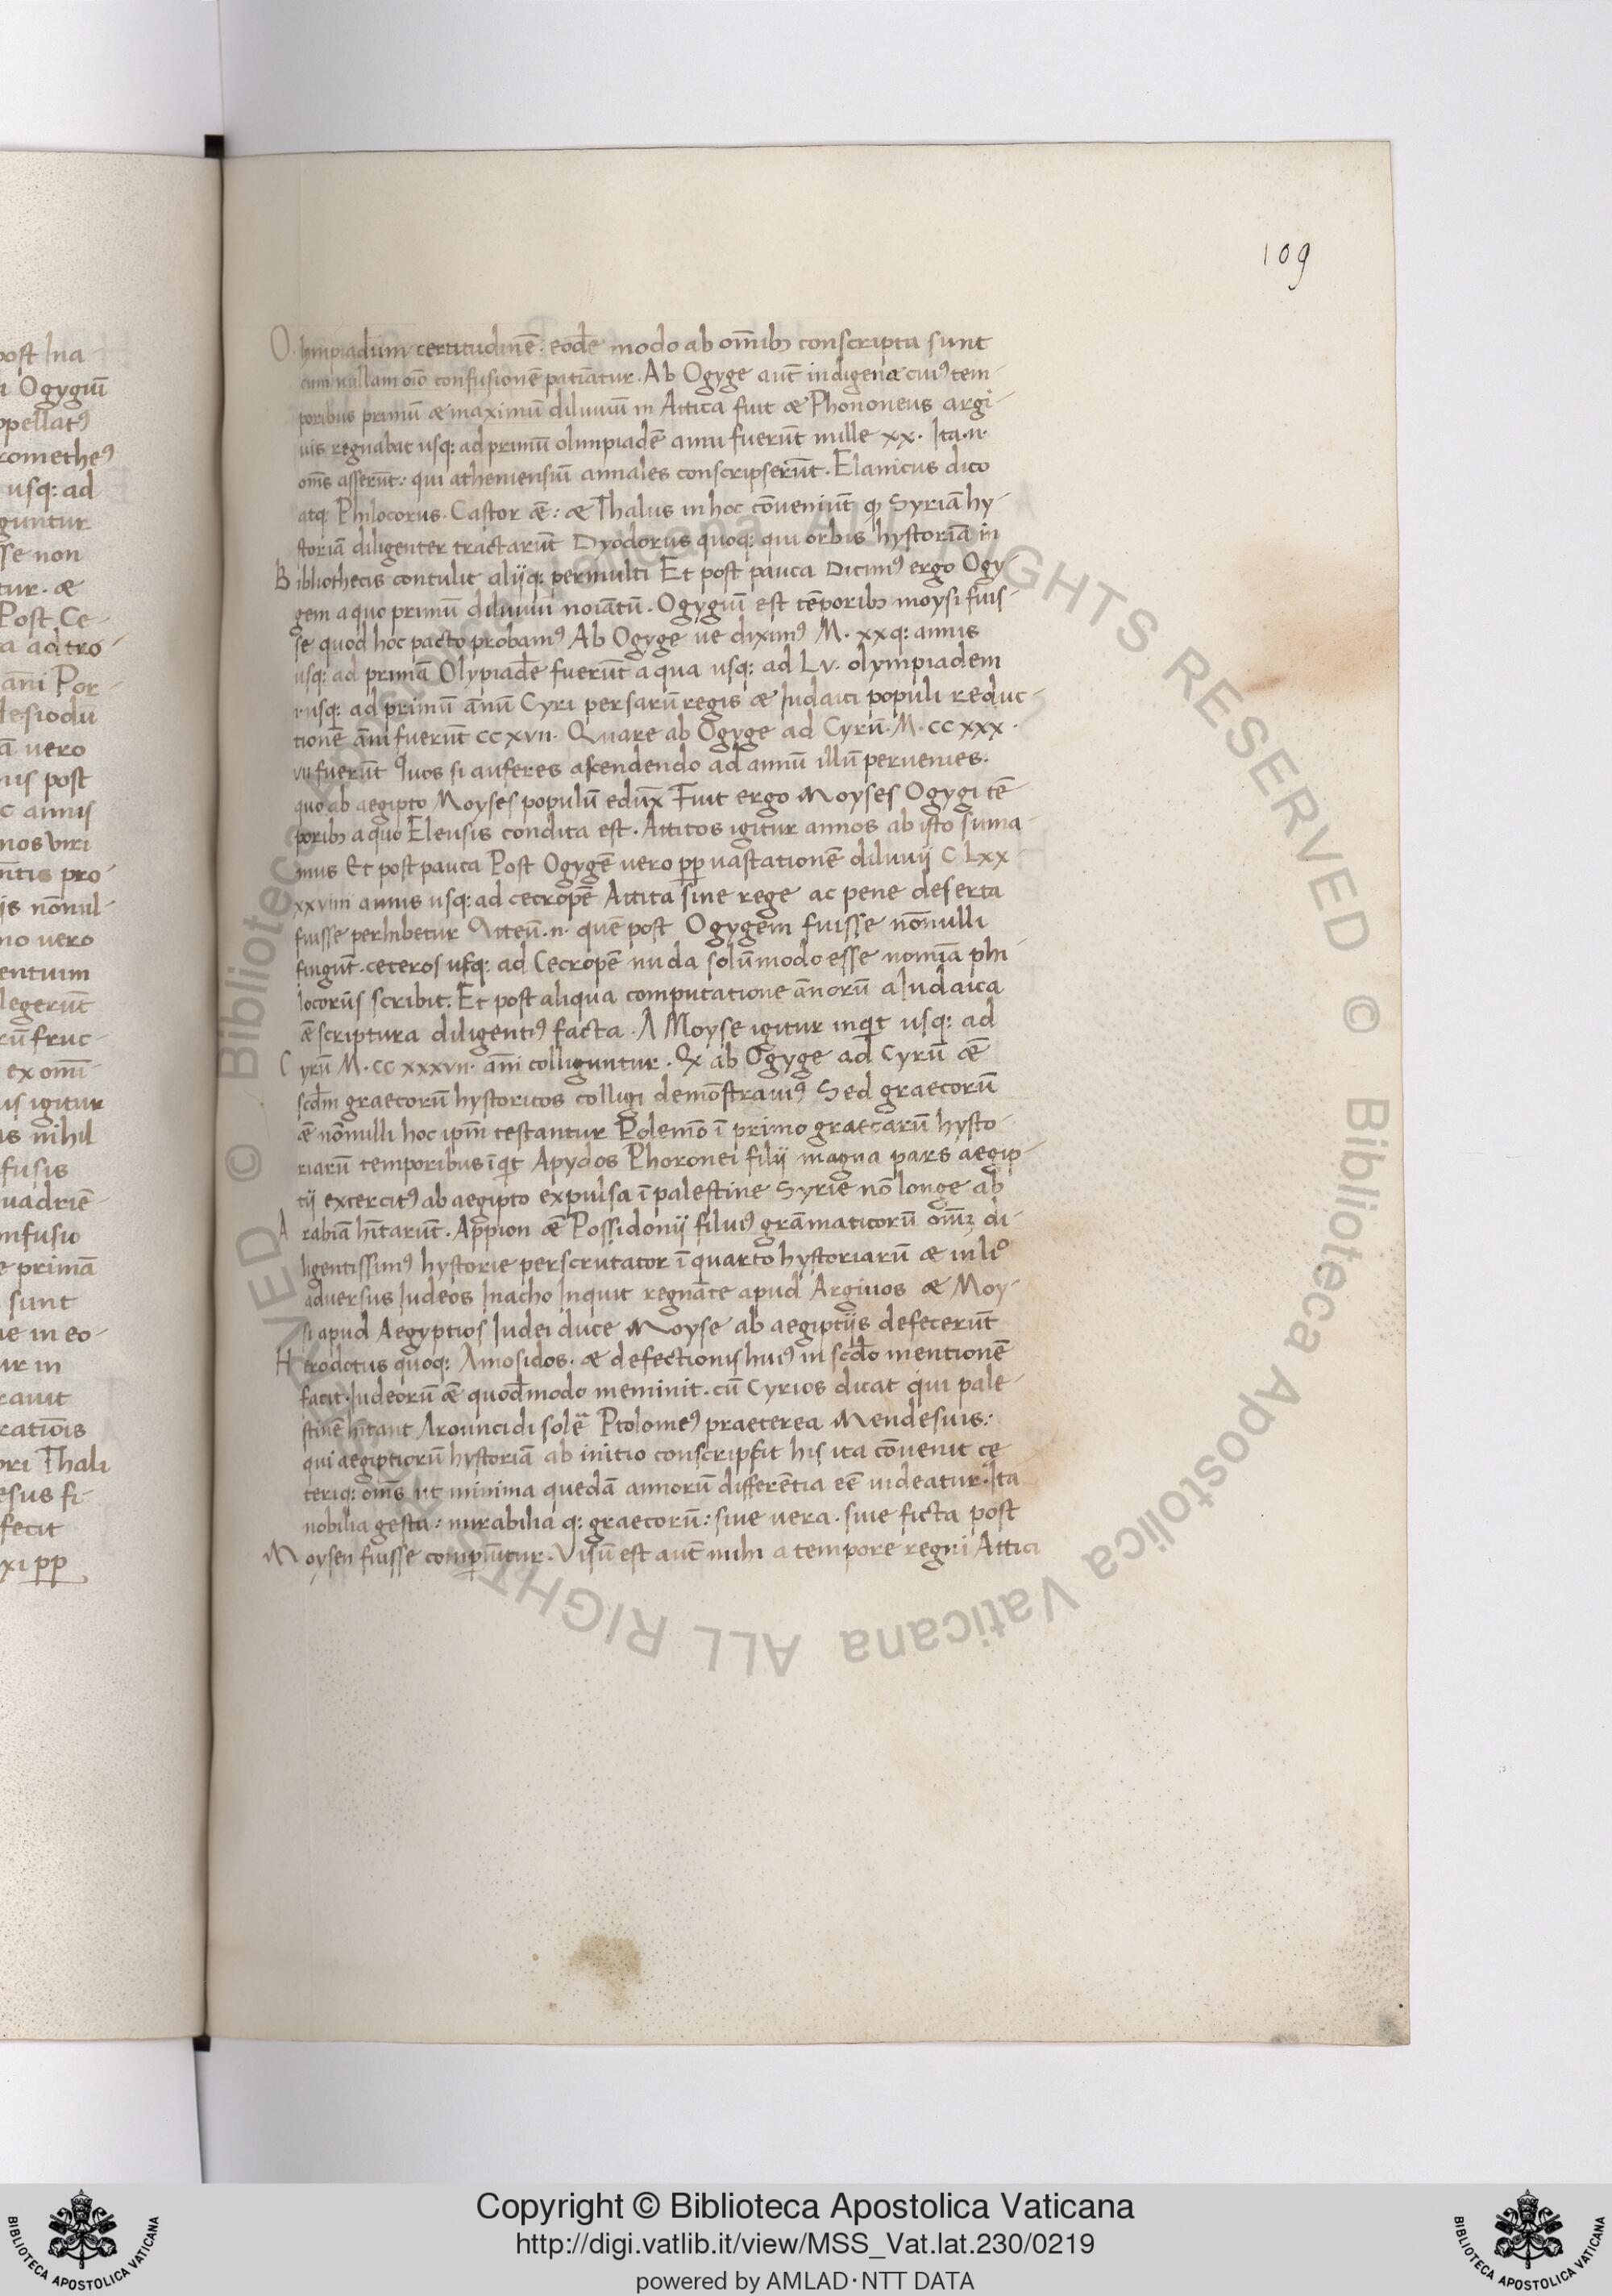 109
post Ina-
Ogygiū
ppellatꝰ
rometheꝰ
usq: ad
guntur
sse non
tur. &
Post Ce-
a ad tro-
am̄i Por-
Hesiodū
ā vero
nis post
c annis
nos viri
n̄tis pro-
is nōnul-
no vero
entium
legerūt
rū fruc-
ex omī-
us igitur
as nihil
fusis
uadriē-
nfusio
e primā
sunt
ue in eo-
ur in
rauit
ratiōis
ori Thali
esus fi-
fecit
xi pp
O. limpiadum certitudinē. eodē modo ab om̄ibꝫ conscripta sunt
cum nullam oīo confusionē patiātur. Ab Ogyge aut̄ indigena cuiꝰ tem-
poribus primū & maximū diluuiū in Attica fuit & Phononeus argi-
uis regnabat usq: ad primū olimpiadē anni fuerūt mille xx. Ita.n.
om̄s asserūt: qui atheniensiū annales conscripserūt. Elanicus dico
atq: Philocorus. Castor &̄: & Thalus in hoc cōueniūt qꝫ Syriā hy-
storiā diligenter tractarūt Dyodorus quoq: qui orbis hystoriā in
Bibliothecis contulit alijq: permulti Et post pauca Dicimꝰ ergo Ogy-
gem a quo primū diluuiū noīatū. Ogygiū est tēporibꝫ moysi fuis-
se quod hoc pacto probamꝰ Ab Ogyge ut diximꝰ M. xxq: annis
usq: ad primā Olypiadē fuerūt a qua usq: ad Lv. olympiadem
i usq: ad primū annū Cyri persarū regis & Iudaici populi reduc-
tionē am̄i fuerūt cc xvii. Quare ab Ogyge ad Cyrū. M. cc xxx.
vii fuerūt Quos si auferes ascendendo ad annū illū peruenies.
quo ab aegipto Moyses populū edux̄ Fuit ergo Moyses Ogygi tē
poribꝫ a quo Eleusis condita est. Atticos igitur annos ab isto suma-
mus Et post pauca Post Ogygē vero pp uastationē diluuij C Lxx
xxviiii annis usq: ad cecropē Attica sine rege ac pene deserta
fuisse perhibetur Atteū.n. quē post Ogygem fuisse nōnulli
fingūt. ceteros usq: ad Cecropē nuda solūmodo esse nomīa phi-
locorus scribit. Et post aliqua computatione ānorū a Iudaica
&̄ scriptura diligentiꝰ facta. A Moyse igitur inqͥt usq: ad
Cyrū M. cc xxxvii. am̄i colliguntur. Qꝫ ab Ogyge ad Cyrū &̄
scd̄m graecorū hystoricos colligi demōstrauiꝰ Sed graecorū
&̄ nōnulli hoc ipm̄ testantur Polemō ī primo graecarū hysto-
riarū temporibus īqͥt Apydos Phoronei filij magna pars aegip-
tij excercitꝰ ab aegipto expulsa ī palestine Syrie nō longe ab
Arabiā hītarūt. Appion &̄ Possidonij filiuꝰ grāmaticorū om̄ꝫ di-
ligentissimꝰ hystorie perscrutator ī quarto hystoriarū & in liᵒ
adversus Iudeos Inacho Inquit regnāte apud Argiuos & Moy-
si apud Aegyptios Iudei duce Moyse ab aegiptijs defecerūt
Herodotus quoq: Amosidos. & defectionis huiꝰ in scd̄o mentionē
facit. Iudeorū &̄ quodmodo meminit. cū Cyrios dicat qui pale-
stinē hītant Arouncidi solē Ptolomeꝰ praeterea Mendesuis:
qui aegiptiorū hystoriā ab initio conscripsit his ita cōuenit ce
teriq: om̄s ut minima quedā annorū differētia eē uideatur. Ita
nobilia gesta: mirabilia q: graecorū: siue vera. siue ficta post
Moysen fuisse comperiūtur. Visū est aut̄ mihi a tempore regni Attici
Copyright © Biblioteca Apostolica Vaticana
http://digi.vatlib.it/view/MSS_Vat.lat.230/0219
powered by AMLAD·NTT DATA